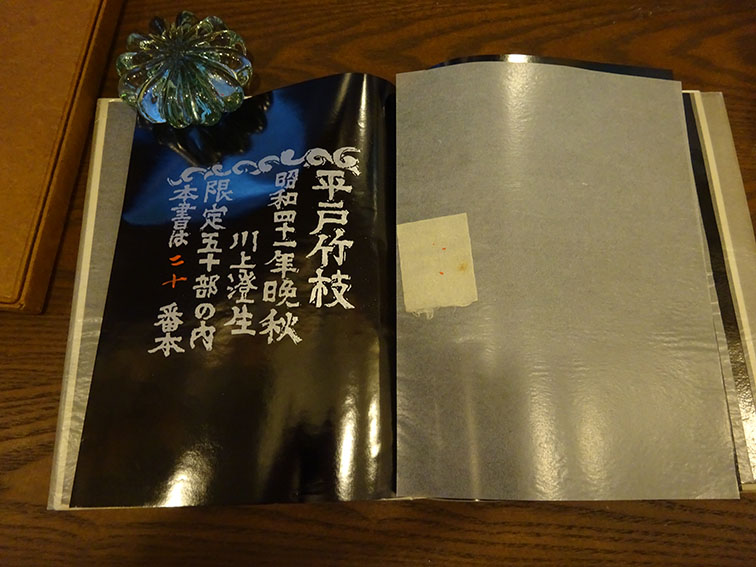 平戸竹枝
昭和四十一年晩秋
川上澄生
限定五十部の内
本書は二十番本